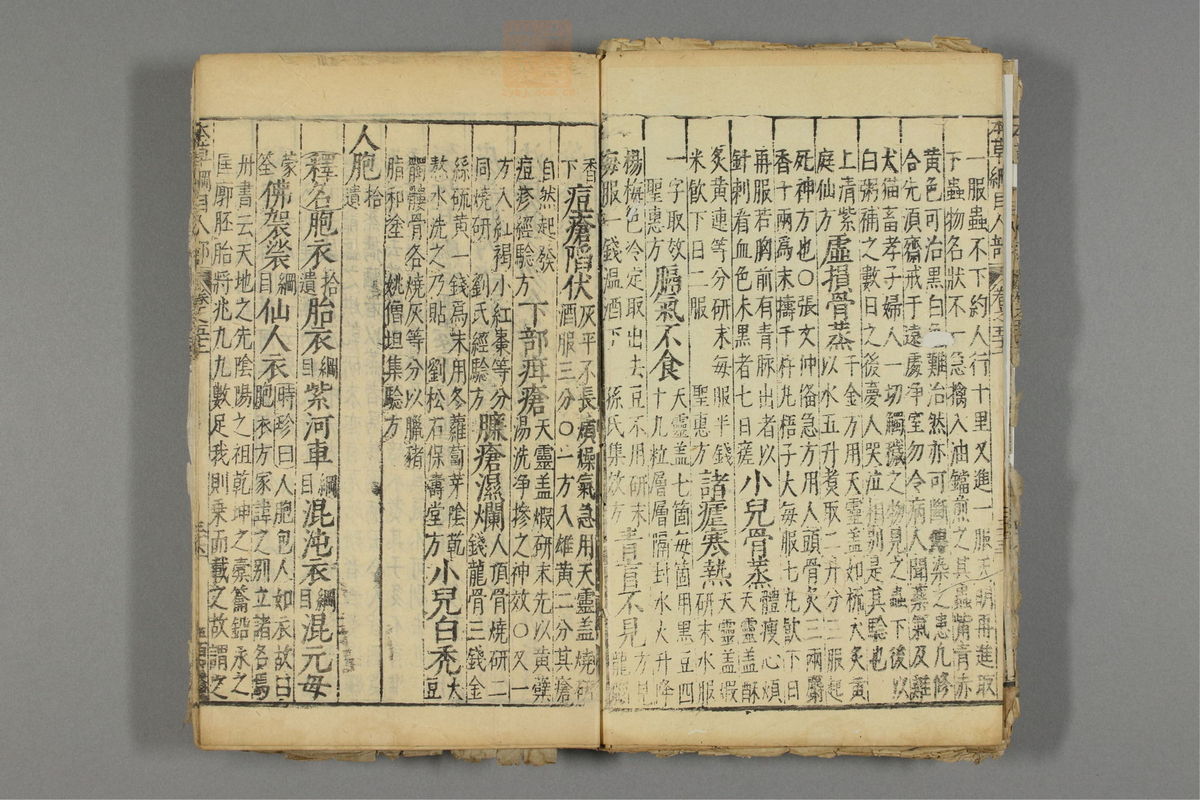 一服蟲不下約人行十里又進一服天明再進取
下蟲物名狀不一急擒入油鐺煎之其蟲觜青赤
黄色可治黑白色難治然亦可斷傳染之患凡修
合先湏齋戒于遠處净室勿令病人聞藥氣及雞
犬猫畜孝子婦人一切觸穢之物見之蟲下後以
白粥補之數日之後夢人哭泣相别是其驗也
上清紫庭仙方 虛損骨蒸 千金方用天靈盖如梳大炙黄以水五升煮取二升分三服起
死神方也○張文仲俻急方用人頭骨炙三兩麝
香十兩爲末擣千杵丸梧子大每服七丸飲下日
再服若胸前有青脉出者以
針刺看血色未黑者七日瘥 小兒骨蒸 體瘦心煩天靈盖酥
炙黄連等分研末每服半錢
米飲下日二服 聖惠方 諸瘧寒熱 天靈盖煅研末水服
一字取效 聖惠方 膈氣不食 天靈盖七箇每箇用黑豆四十九粒層層隔封水火升降
楊梅色冷定取出去豆不用研末
每服一錢温酒下 孫氏集效方 青盲不見 方龍腦
香下 痘瘡陷伏 灰平不長煩燥氣急用天靈盖燒研酒服三分○一方入雄黄二分其瘡
自然起發
痘疹經驗方 下部疳瘡 天靈盖煅研末先以黄蘗湯洗净摻之神效○又一
方入紅褐小紅棗等分
同燒研 劉氏經驗方 臁瘡濕爛 人頂骨燒研二錢龍骨三錢金
絲硫黄一錢爲末用冬蘿蔔芽陰乾
熬水洗之乃貼 劉松石保壽堂方 小兒白禿 大豆
髑髏骨各燒灰等分以臘猪
脂和塗 姚僧坦集驗方
人胞 拾遺
釋名胞衣 拾遺 胎衣 綱目 紫河車 綱目 混沌衣 綱目 混元母
蒙筌 佛袈裟 綱目 仙人衣 時珍曰人胞包人如衣故曰胞衣方家諱之别立諸名焉
丹書云天地之先陰陽之祖乾坤之橐籥鉛汞之
匡廓胚胎將兆九九數足我則乘而載之故謂之
本草綱目人部
卷之五十二
本草綱目人部
卷之五十二